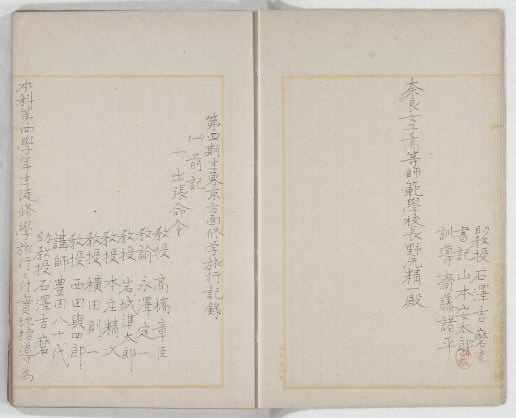 助教授 石澤吉磨
書記 山本安太郎
訓導 齋藤諸平
奈良女子高等師範學校長野尻精一殿
第四期生東京方面修学旅行記錄
(一)前記
一 出張命令
教授 高橋章臣
教諭 永澤定一
教授 岩城準太郎
教授 本庄精次
教授 横田則一
教授 西田與四郎
講師 豊田八十代
助教授 石澤吉磨
本科第四學年生徒修學旅行ニ付實地指導ノ為